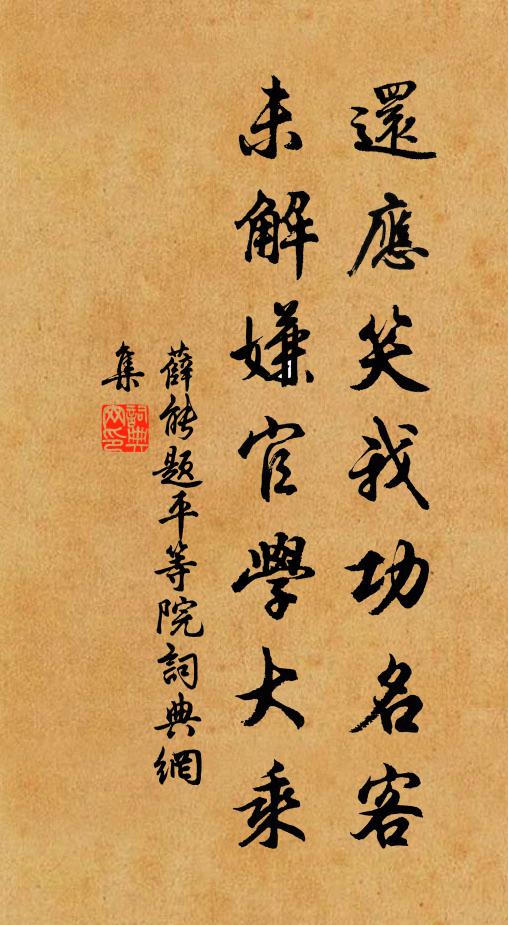 還應笑我功名客
未解嫌官學大乘
薛能題平等院詞典網
集
詞典网印